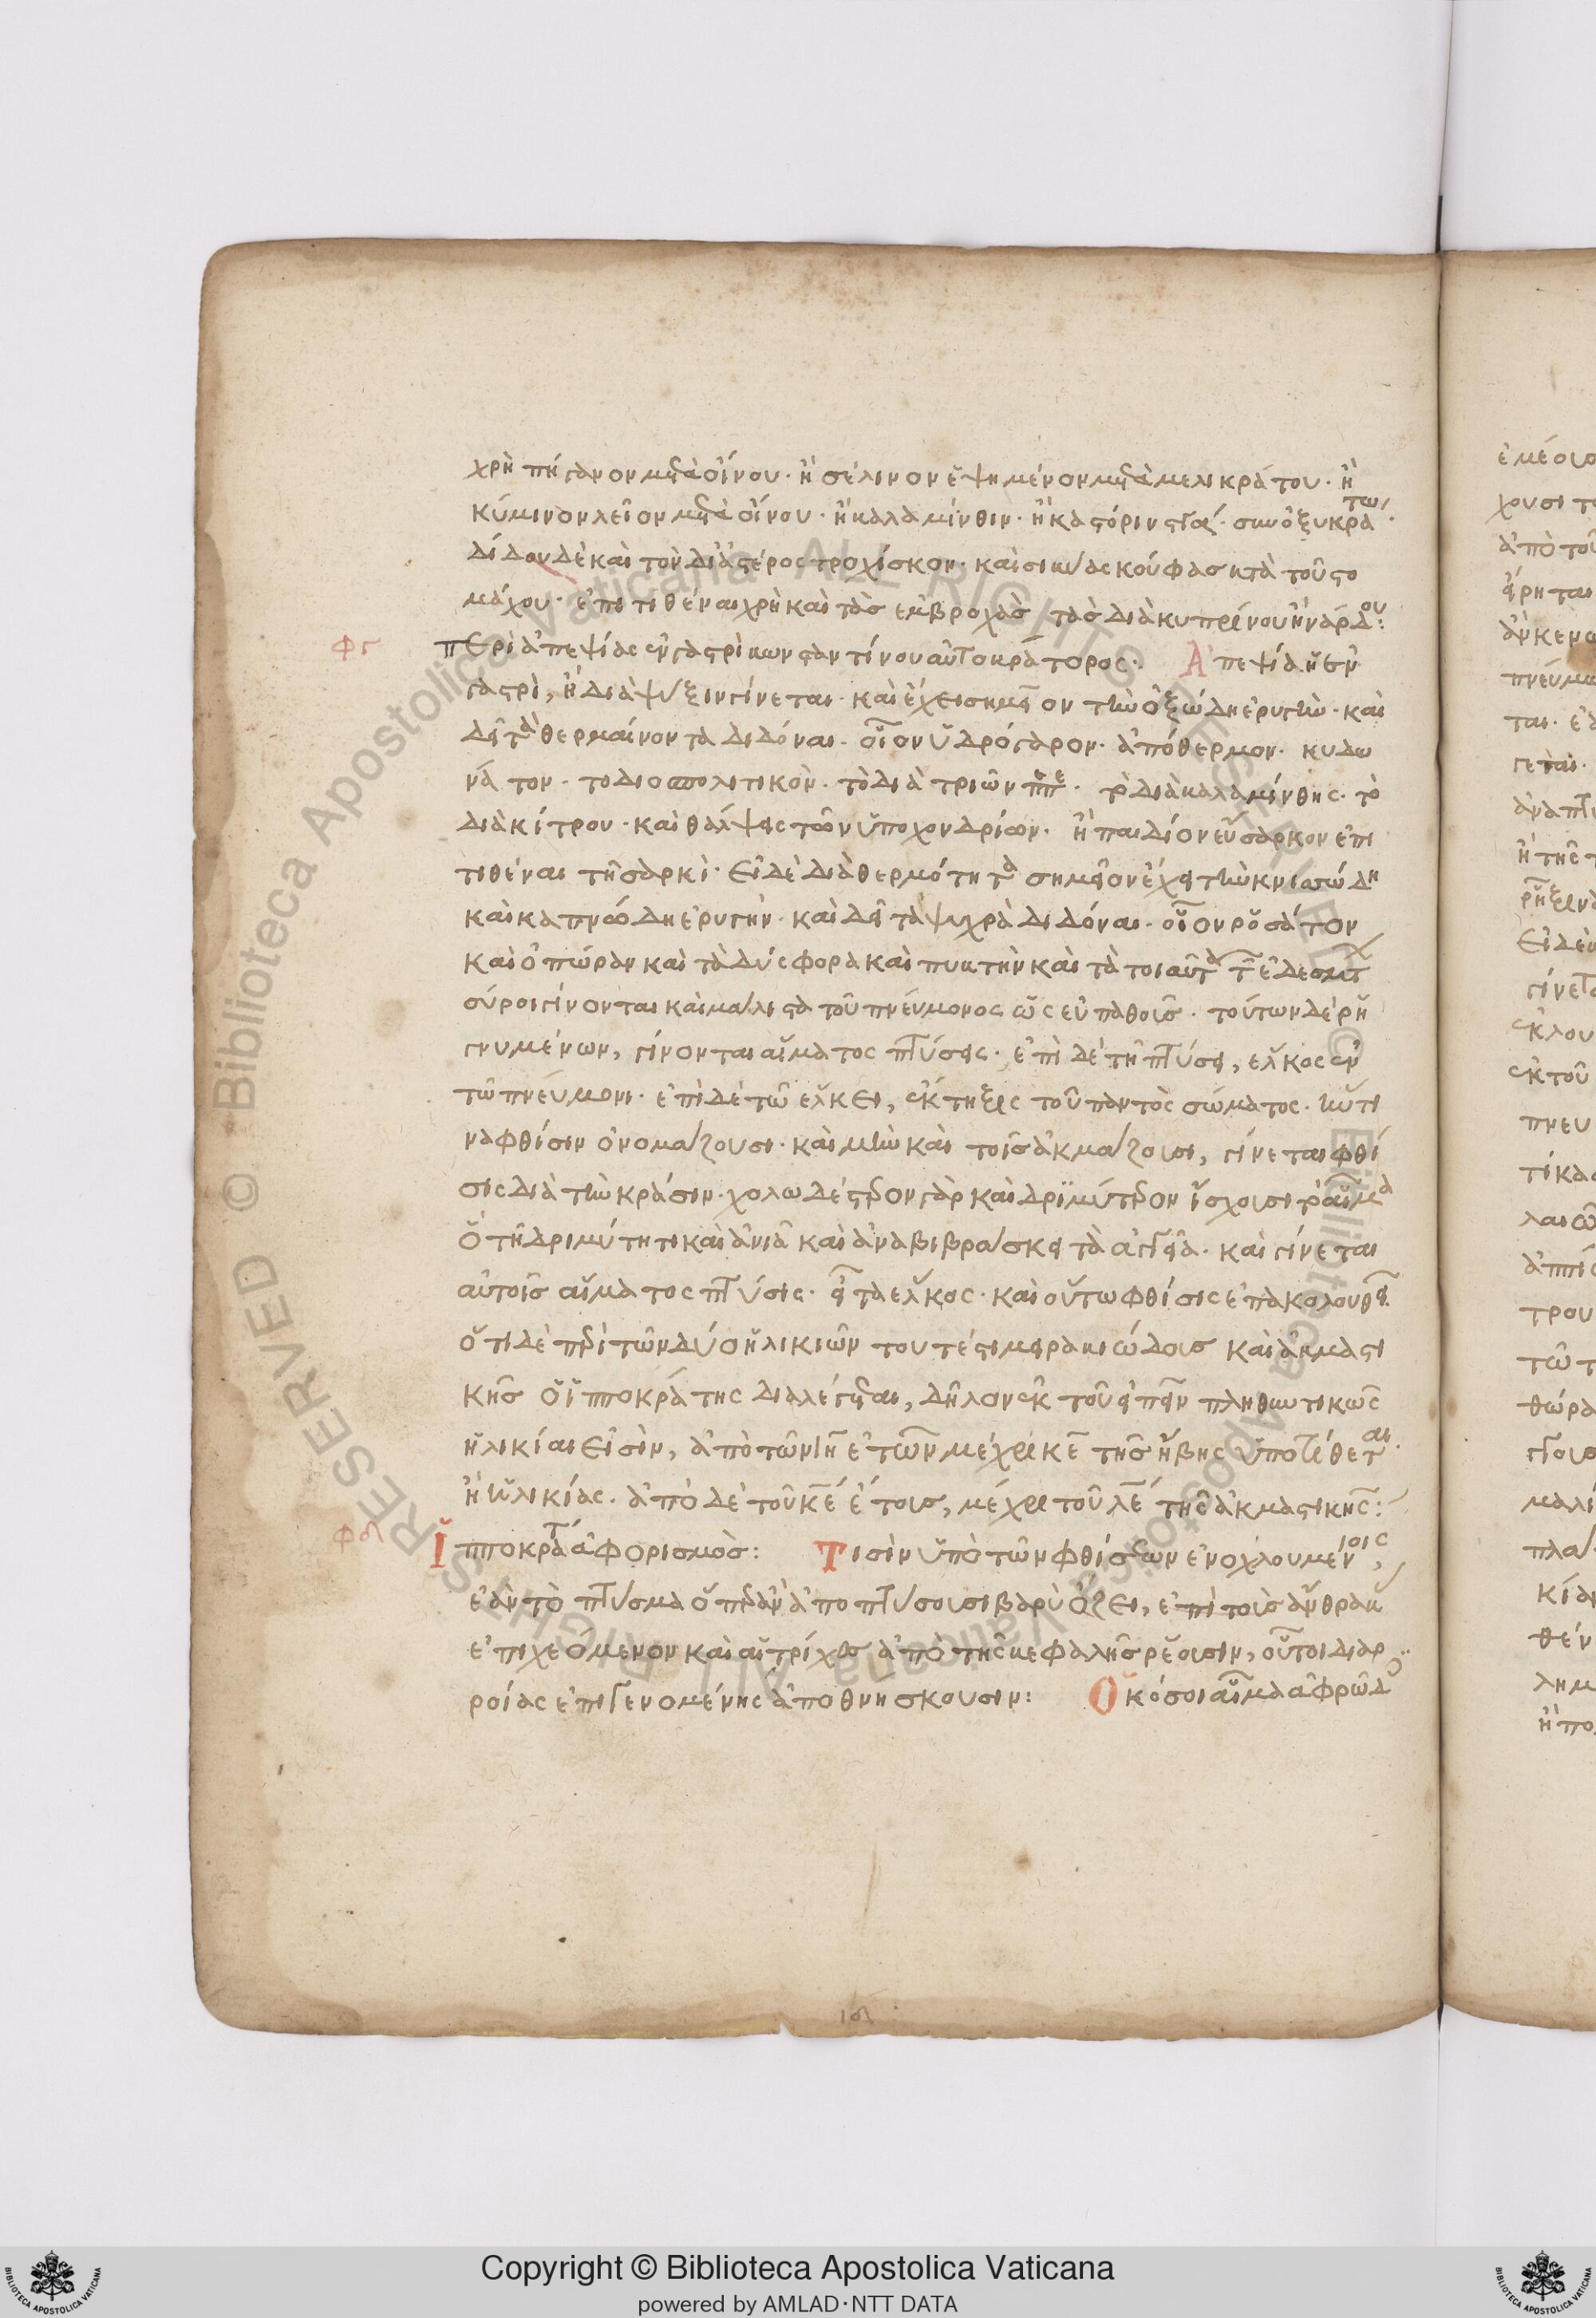 χρὴ πήγανον μετὰ οἴνου· ἢ σέλινον ἑψημένον μετὰ μελικράτου· ἢ
κύμινον λεῖον μετὰ οἴνου· ἢ καλαμίνθην· ἢ καστόριν σὺν ὀξυκράτω·
δίδου δὲ καὶ τὸν δι' ἀστέρος τροχίσκον· καὶ σικύας κούφας κατὰ τοῦ στο
μάχου· ἐπιτιθέναι χρὴ καὶ τὰς ἐμβροχὰς τὰς διὰ κυπρίνου ἢ νάρδου:
φ
περὶ ἀπεψίας ἐν γαστρὶ κωνσταντίνου αὐτοκράτορος· Ἀπεψία ἡ ἐν
γαστρὶ, ἢ διὰ ψύξιν γίνεται· καὶ ἔχει σημεῖον τὴν ὀξώδη ἐρυγήν· καὶ
δεῖ τὰ θερμαίνοντα διδόναι· οἷον ὑδρόγαρον· ἀπόθερμον· κυδω
νάτον· το διοσπολιτικὸν· τὸ διὰ τριῶν πεπέ· τὸ διὰ καλαμίνθης· τὸ
διὰ κίτρου· καὶ θάλψεις τῶν ὑποχονδρίων· ἢ παιδίον εὔσαρκον ἐπι
τιθέναι τῇ σαρκὶ· Εἰ δὲ διὰ θερμότητα σημεῖον ἔχει τὴν κνισώδη
καὶ καπνώδη ἐρυγήν· καὶ δεῖ τὰ ψυχρὰ διδόναι· οἷον ῥοσάτον
καὶ ὀπώραν καὶ τὰ δύσφορα καὶ πυκτὴν καὶ τὰ τοιαῦτα τῶν ἐδεσμάτ
σύροι γίνονται καὶ μάλιστα τοῦ πνεύμονος ὡς εὐπαθοῦς· τούτων δὲ ῥη
γνυμένων, γίνονται αἵματος πτύσεις· ἐπὶ δὲ τῇ πτύσει, ἕλκος ἐν
τῶ πνεύμονι· ἐπὶ δὲ τῶ ἕλκει, ἔκτηξις τοῦ παντὸς σώματος· ἥντι
να φθίσιν ὀνομάζουσι· καὶ μὴν καὶ τοῖς ἀκμάζουσι, γίνεται φθί
σις διὰ τὴν κρᾶσιν· χολωδέστερον γὰρ καὶ δριμύτερον ἴσχουσι τὸ αἷμα
ὃ τῇ δριμύτητι καὶ ἀνιᾶ καὶ ἀναβιβρώσκει τὰ ἀγγεῖα· καὶ γίνεται
αὐτοῖς αἵματος πτύσις· εἶτα ἕλκος· καὶ οὕτω φθίσις ἐπακολουθεῖ·
ὅτι δὲ περὶ τῶν δύο ἡλικιῶν τουτέστι μειρακιώδους καὶ ἀκμαστι
κῆς ὁ ἱπποκράτης διαλέγεται, δῆλον ἐκ τοῦ εἰπεῖν πληθυντικῶς
ἡλικίαι εἰσὶν, ἀπὸ τῶν ιη ἐτῶν μέχρι κε τῆς ἥβης ὑποτίθεται·
ἡ ἡλικίας· ἀπὸ δὲ τοῦ κε ἔτους, μέχρι τοῦ λε τῆς ἀκμαστικῆς:
φ
Ἱπποκράτ ἀφορισμὸς: Τισὶν ὑπὸ τῶν φθίσεων ἐνοχλουμένοις,
ἐὰν τὸ πτύσμα ὅπερ ἂν ἀποπτύσουσι βαρὺ ὄζει, ἐπὶ τοὺς ἄνθρακ
ἐπιχεόμενον καὶ αἱ τρίχες ἀπὸ τῆς κεφαλῆς ῥέουσιν, οὗτοι διαρ
ροίας ἐπιγενομένης ἀποθνήσκουσιν: Ὁκόσοι αἷμα ἀφρῶδ
Copyright © Biblioteca Apostolica Vaticana
powered by AMLAD·NTT DATA